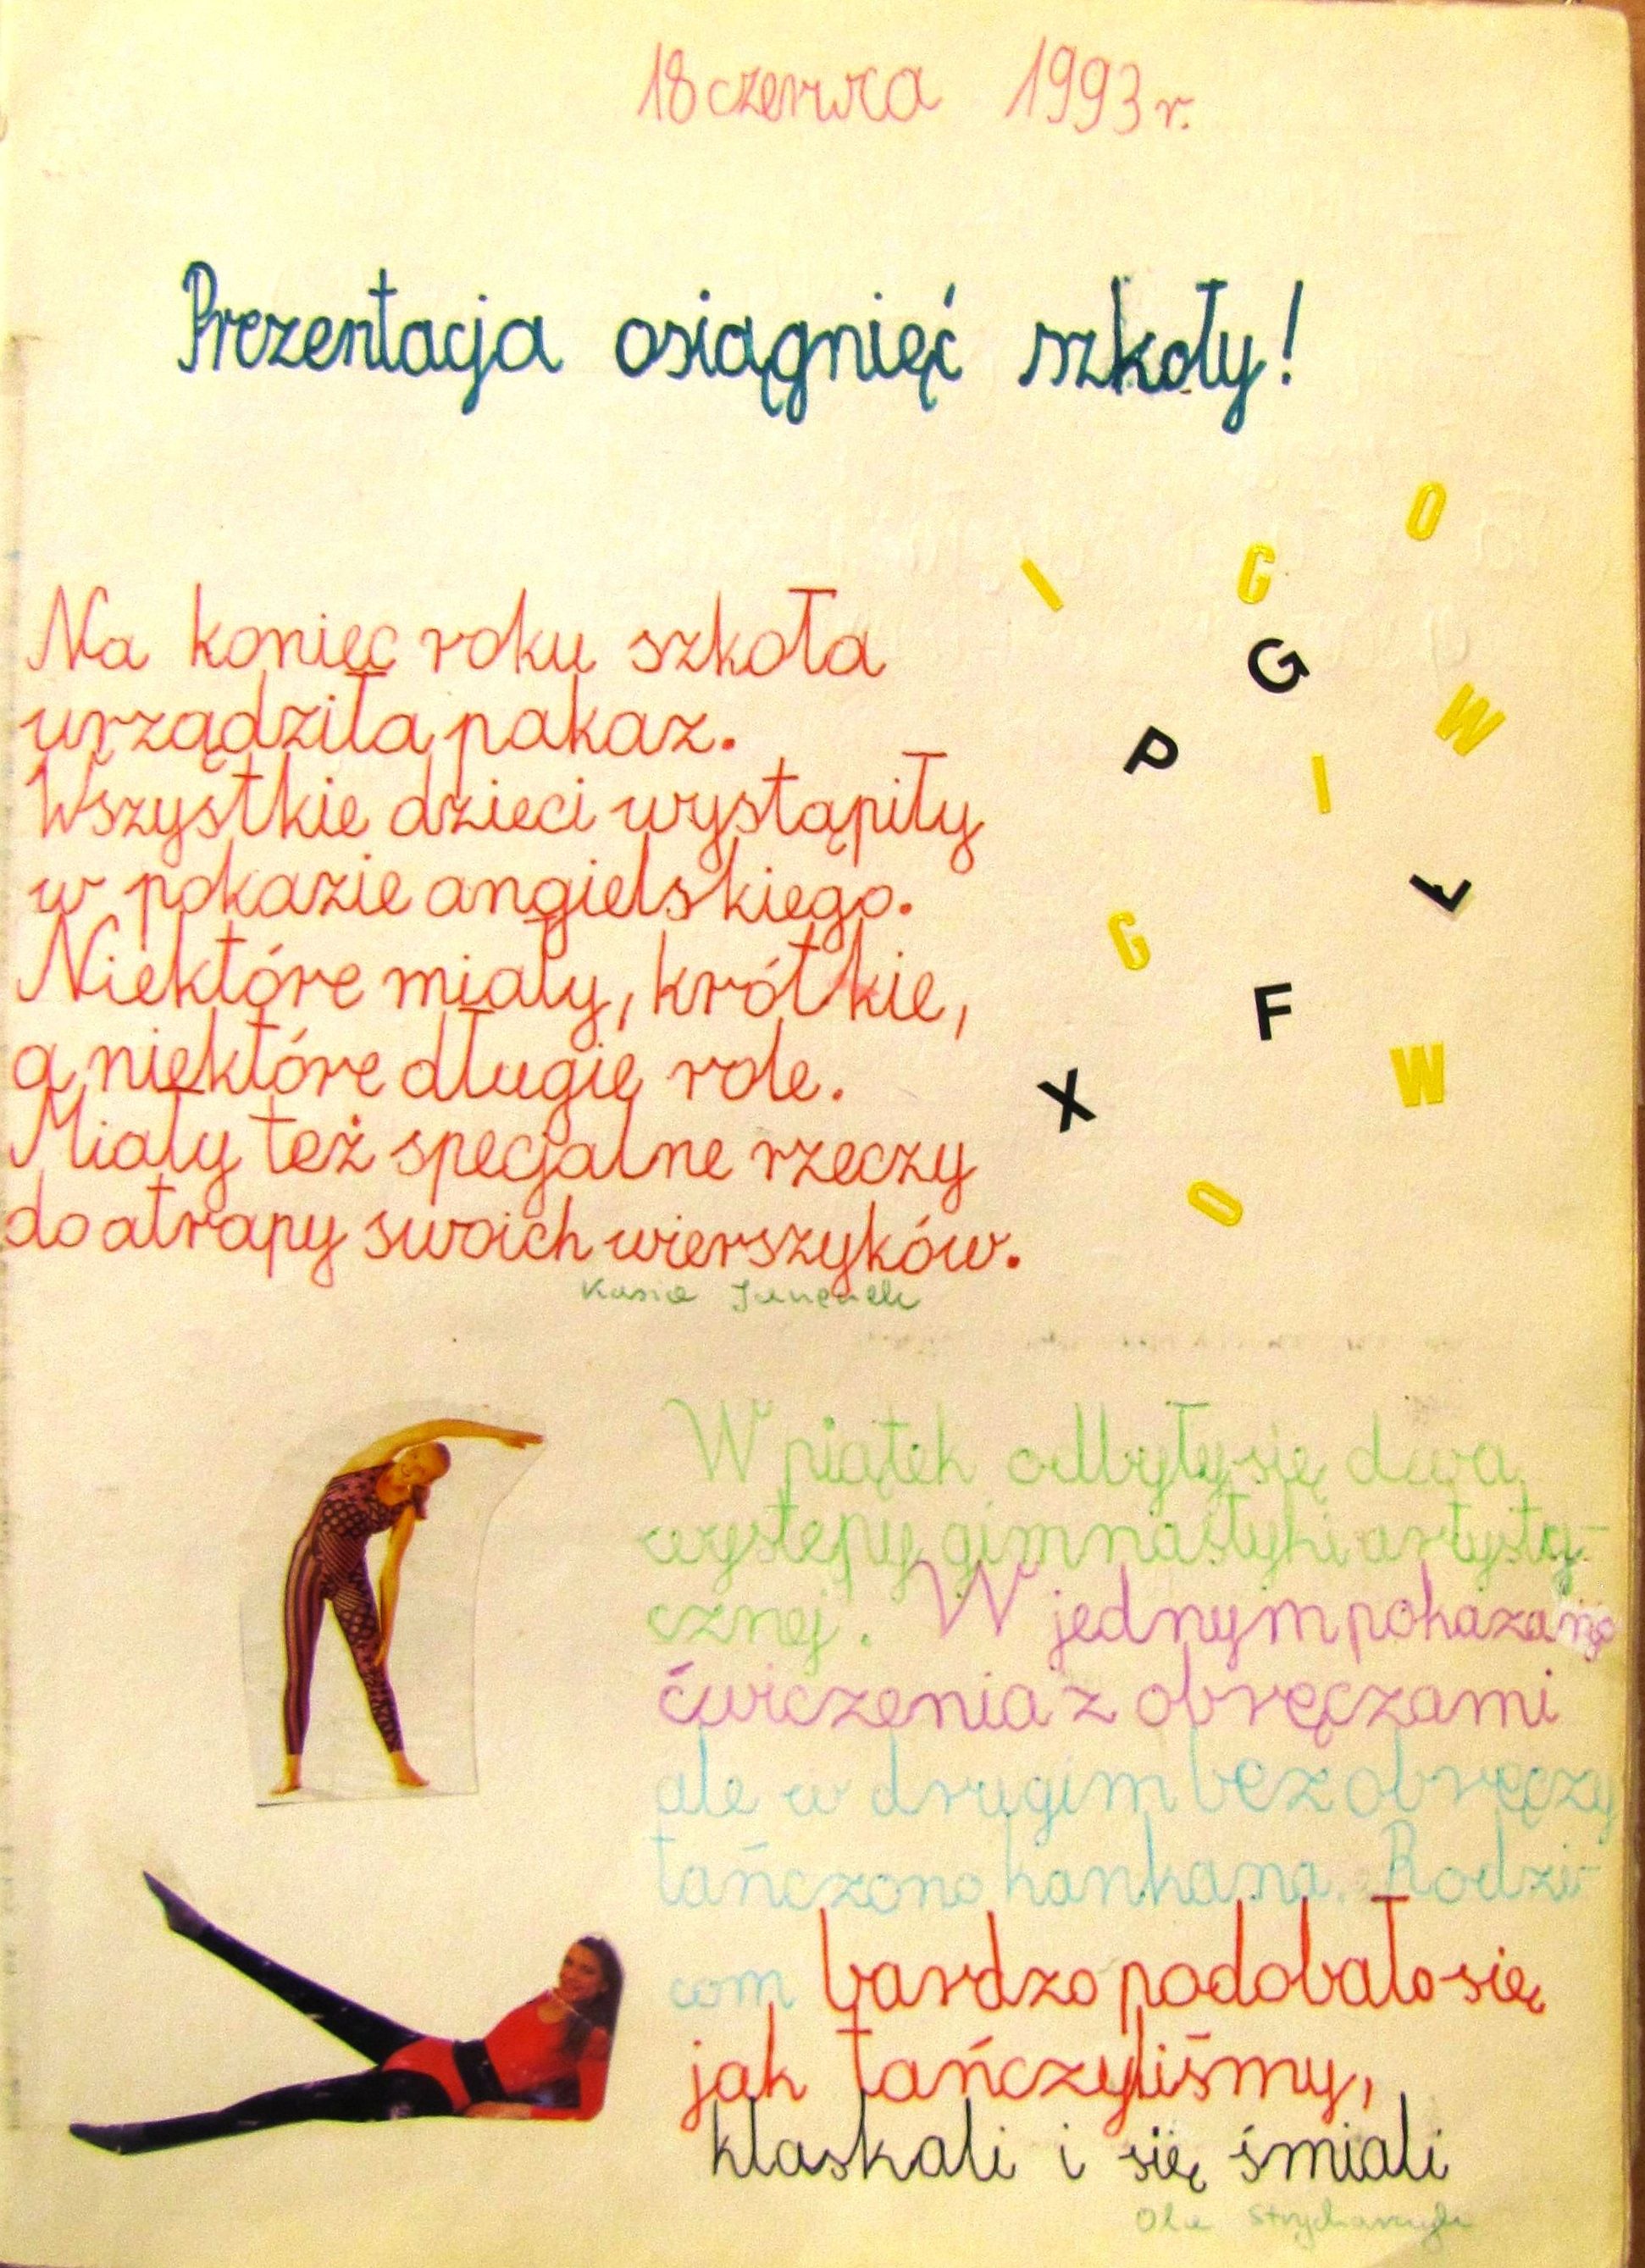 18 czerwca 1993 r.
Prezentacja osiągnięć szkoły!
Na koniec roku szkoła
urządziła pakaz.
Wszystkie dzieci wystąpiły
w pokazie angielskiego.
Niektóre miały, krótkie,
a niektóre długie role.
Miały też specjalne rzeczy
do atrapy swoich wierszyków.
Kasia
O
I G
G
W
P
I
L
G
F
W
X
O
W piątek odbyły się dwa
występy gimnastyki artysty-
cznej. W jednym pokazano
ćwiczenia z obręczami
ale w drugim bez obręczy
tańczono kankana. Rodzi-
com bardzo podobało się
jak tańczyliśmy,
klaskali i się śmiali
Ola